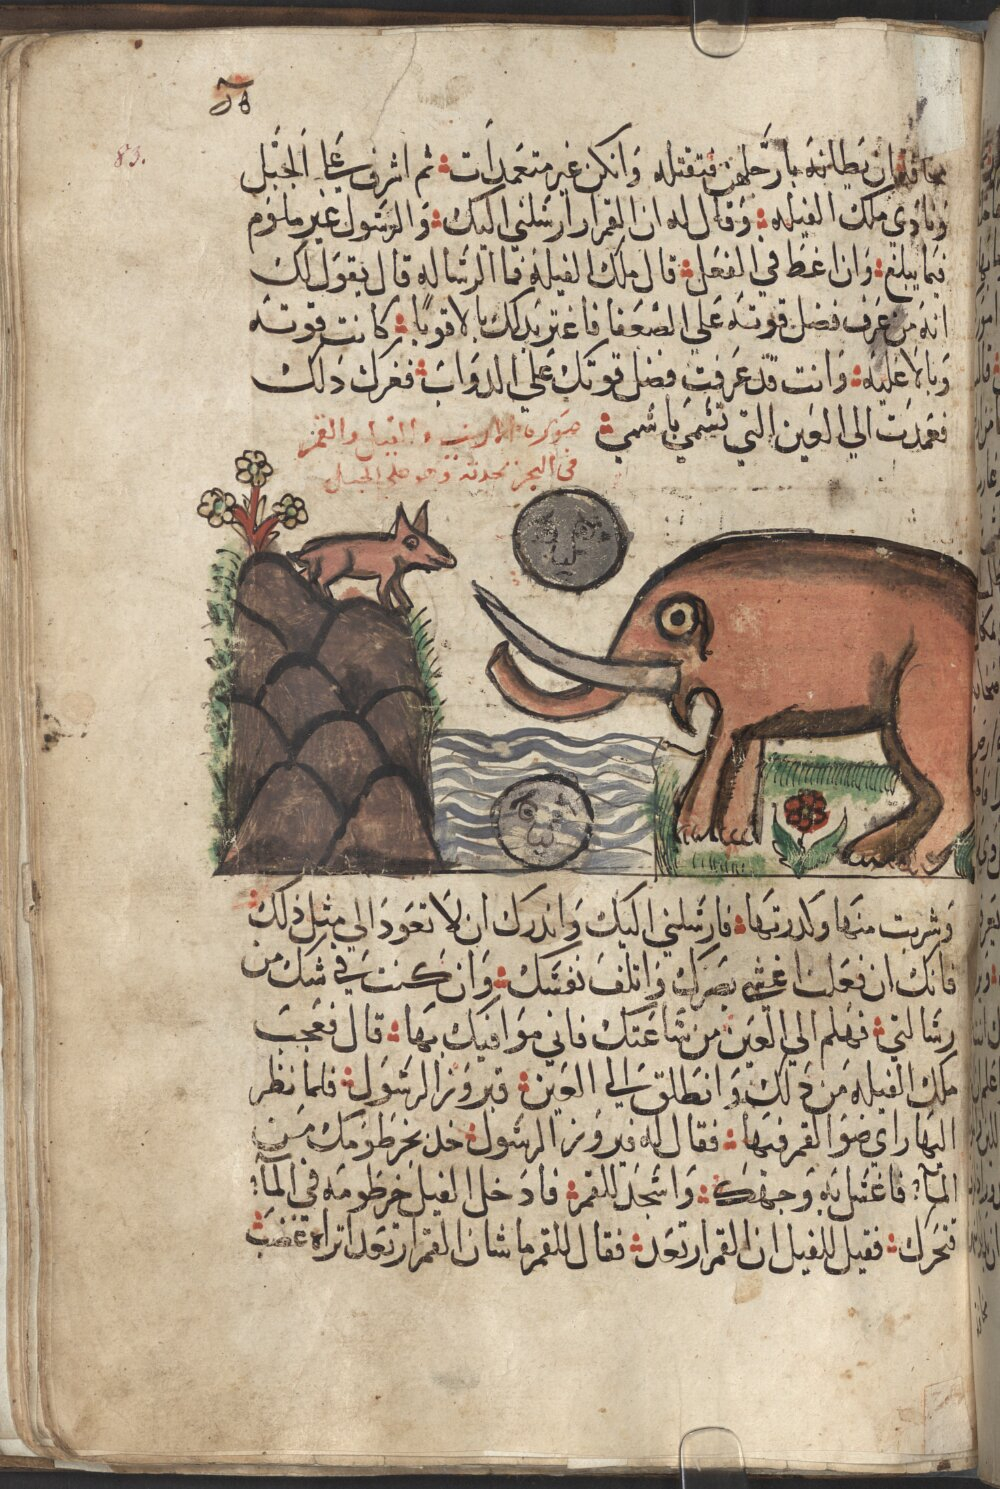 83.
مخافة ان يطانه بارجلهن فتقتله وانكن غير متعمدات ثم اشرف علي الجبل
ونادي ملك الفيله وقال له ان القمر ارسلني اليك والرسول غير ملوم
فيما يبلغ وان اغلظ في القول قال ملك الفيله فما الرساله قال يقول لك
انه من عرف فضل قوته علي الضعفا فاغتر بذلك بالاقويا كانت قوته
وبالا عليه وانت قد عرفت فضل قوتك علي الدواب فغرك ذلك
فعمدت الي العين التي تسمي باسمي
صورة الارنب والفيل والقمر
في البحر تحدثه وهو علي الجبل
وشربت منها وكدرتها فارسلني اليك واندرك ان لا تعود الي مثل ذلك
فانك ان فعلت اغشي بصرك واتلف نفسك وان كنت في شك من
رسالتي فهلم الي العين من ساعتك فاني موافيك بها قال فعجب
ملك الفيله من ذلك وانطلق الي العين فيروز الرسول فلما نظر
اليها راي ضو القمر فيها فقال له فيروز الرسول خذ بخرطومك من
المآء فاغسل به وجهك واسجد للقمر فادخل الفيل خرطومه في المآء
فتحرك فقيل للفيل ان القمر ارتعد فقال للقمر ما شان القمر ارتعد اتراه غضب